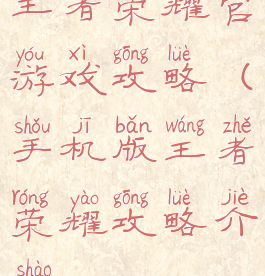 王者荣耀官
yóu xì gōng lüè
游戏攻略（
shǒu jī bǎn wáng zhě
手机版王者
róng yào gōng lüè jiè
荣耀攻略介
shào